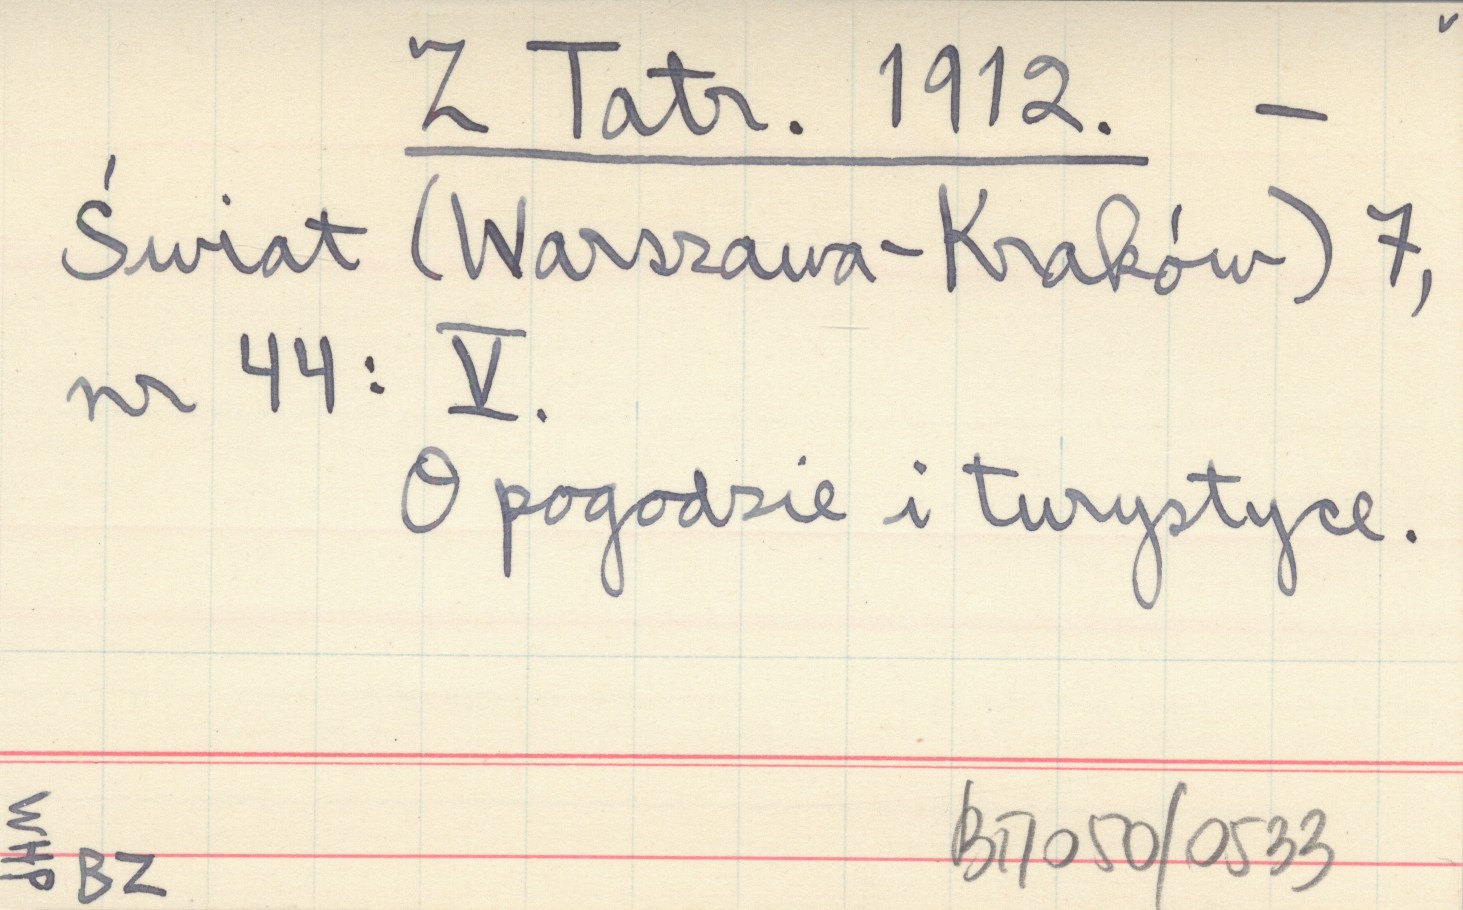 Z Tatr. 1912. –
Świat (Warszawa-Kraków) 7,
nr 44: V.
O pogodzie i turystyce.
WHP
BZ
BT7050/0533